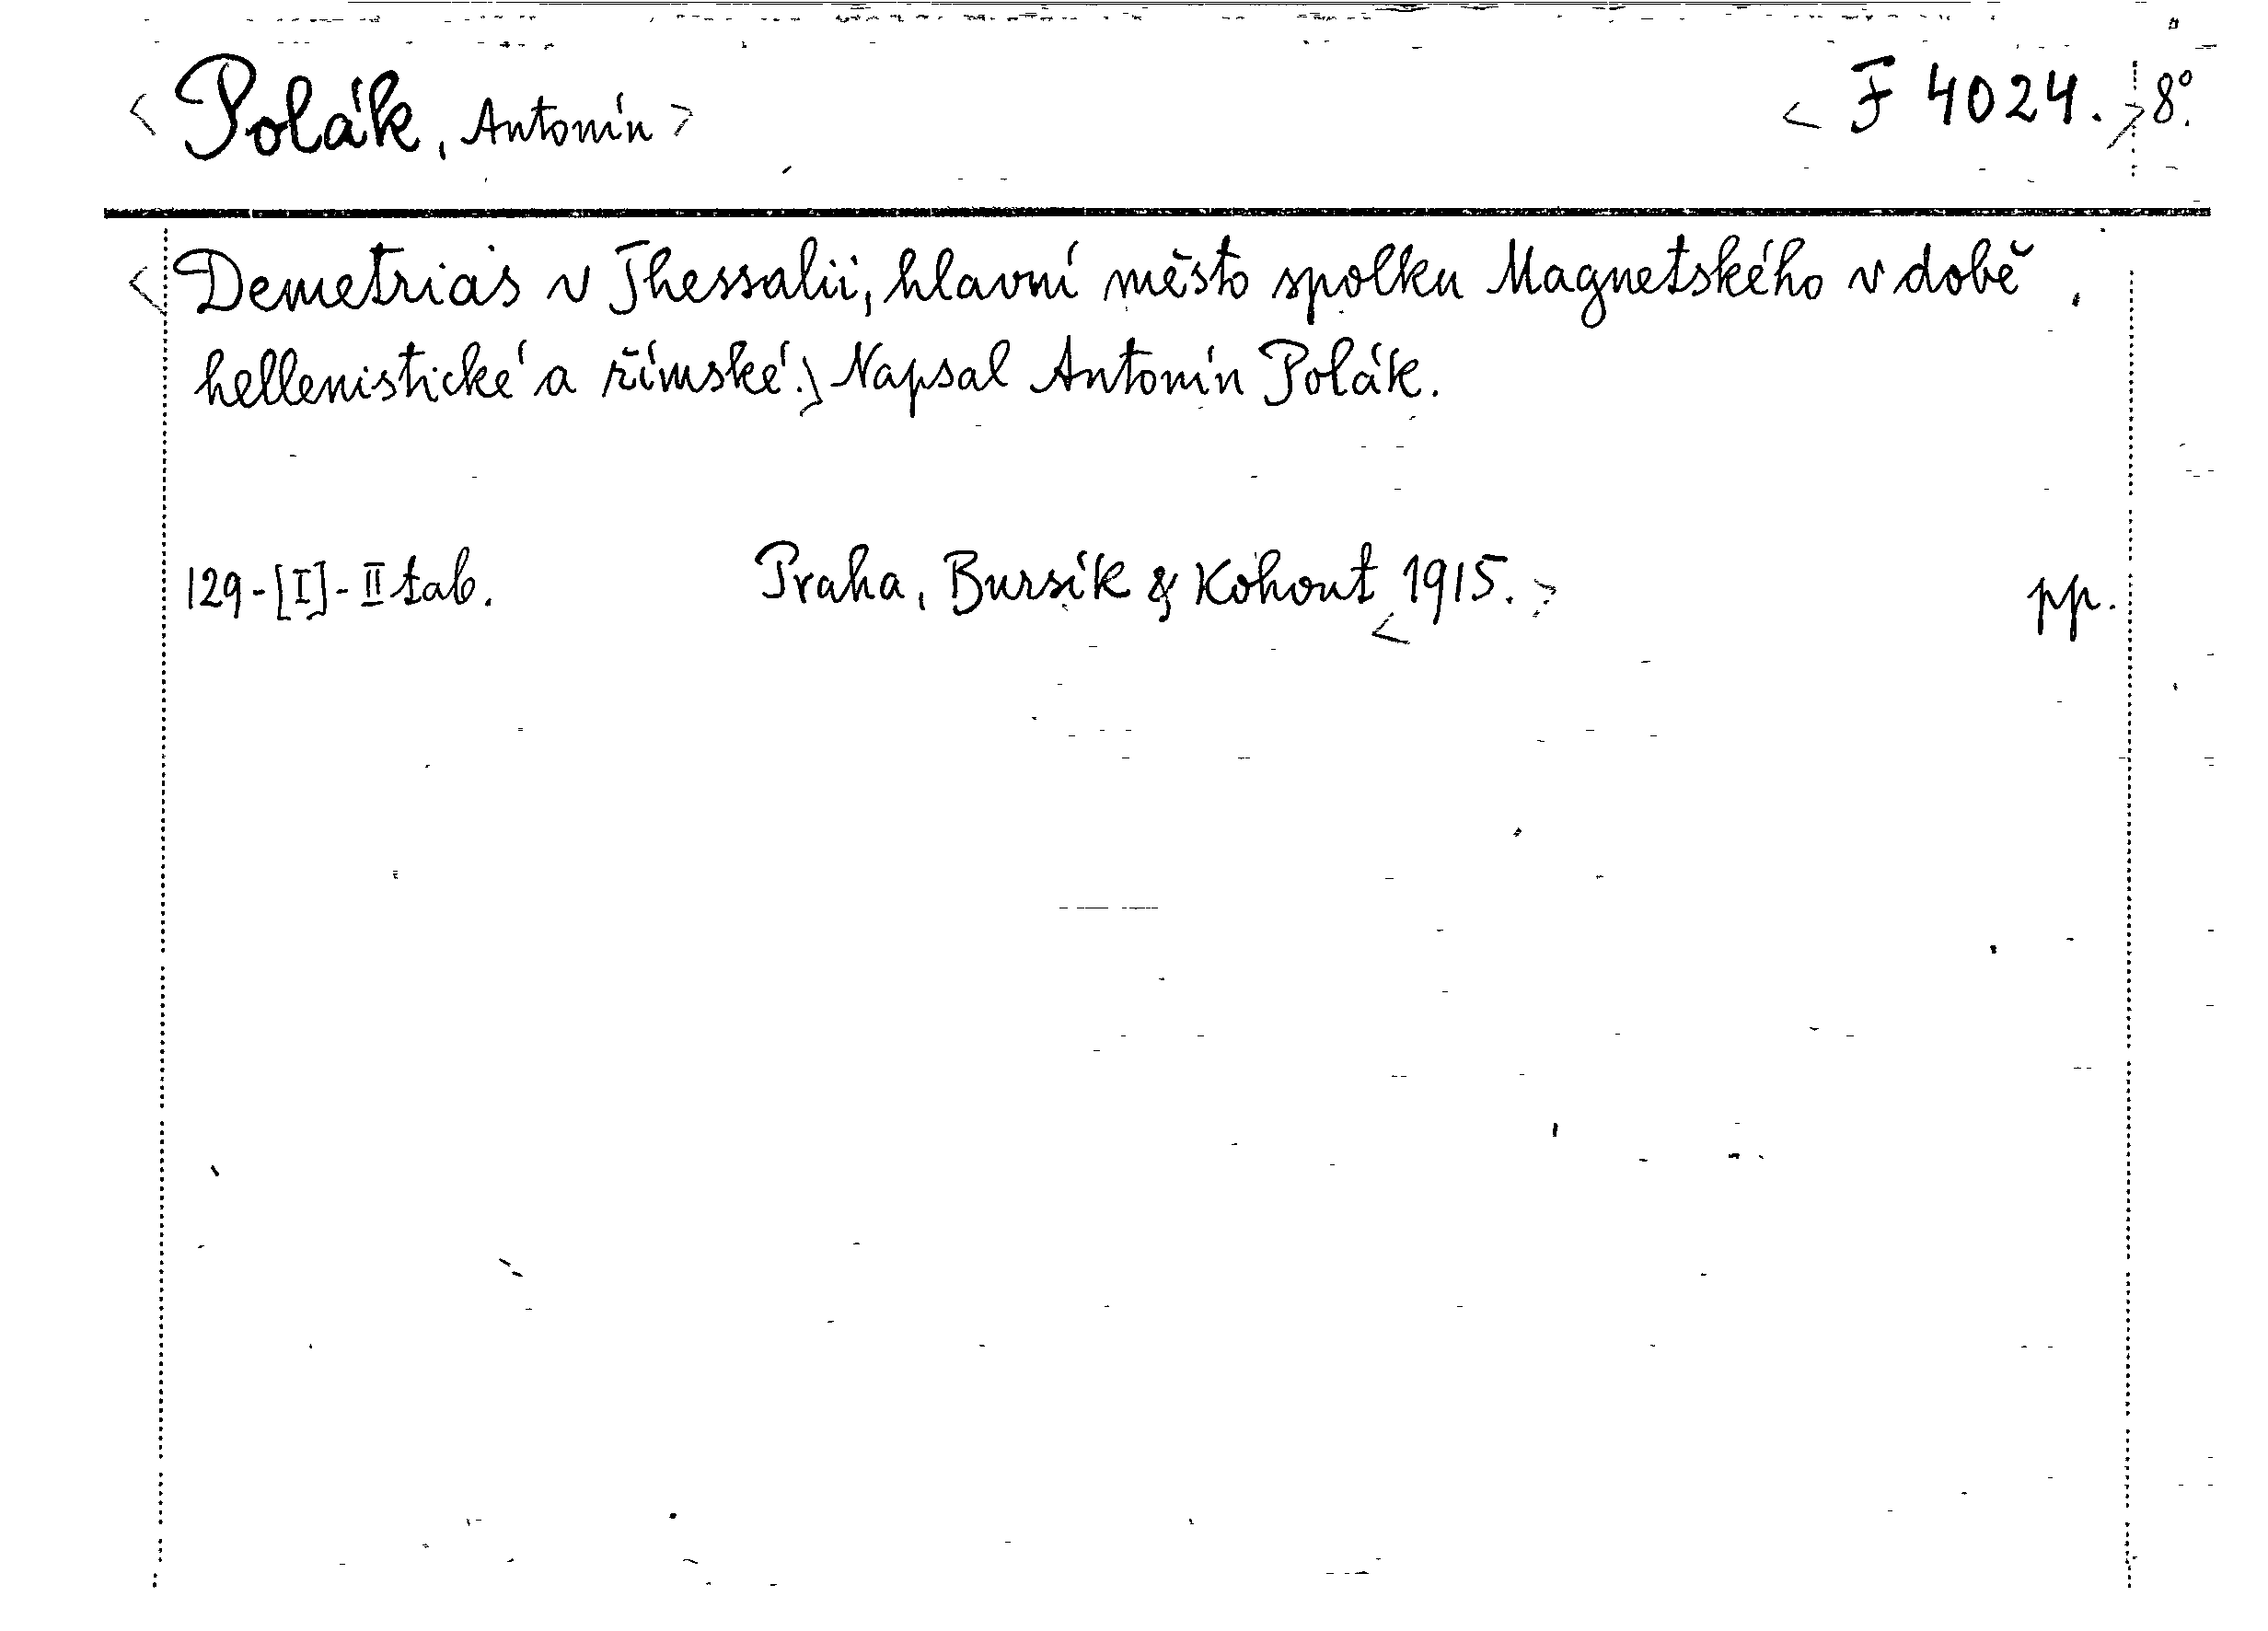 <Polák, Antonín> <F 4024.> 8°.
<Demetrias v Thessalii, hlavní město spolku Magnetského v době
hellenistické a římské.> Napsal Antonín Polák.
129-[I]-II tab. Praha, Bursík & Kohout <1915.> pp.